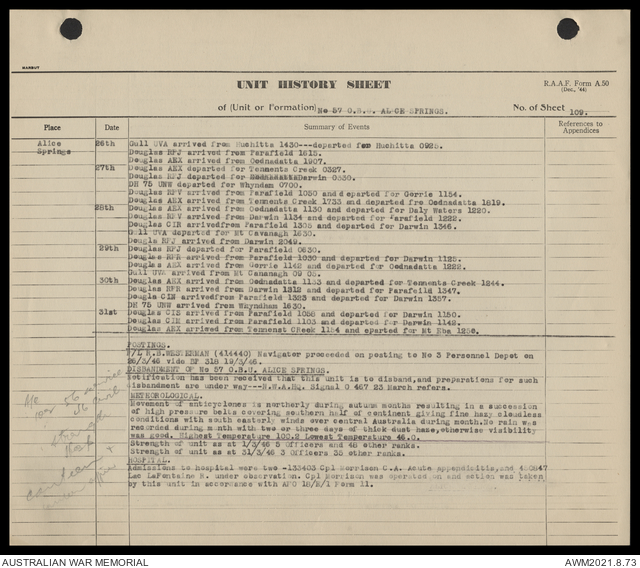 UNIT HISTORY SHEET
R.A.A.F. Form A.50
(Dec., '44)
of (Unit or Formation) No 57 O.B.U. ALICE SPRINGS.
No. of Sheet 109.
Place Date Summary of Events References to Appendices
Alice Springs 26th Gull UVA arrived from Huchitta 1430---departed for Huchitta 0925.
Douglas RFJ arrived from Parafield 1615.
Douglas AEX arrived from Oodnadatta 1907.
27th Douglas AEX departed for Tennents Creek 0327.
Douglas RFJ departed for Darwin 0830.
DH 75 UNW departed for Whyndam 0700.
Douglas RFV arrived from Parafield 1050 and departed for Gorrie 1154.
Douglas AEX arrived from Tennents Creek 1733 and departed fro Oednadatta 1819.
28th Douglas AEX arrived from Oednadatta 1130 and departed for Daly Waters 1220.
Douglas RFV arrived from Darwin 1134 and departed for Parafield 1222.
Douglas CIR arrivedfrom Parafield 1305 and departed for Darwin 1346.
Gull UVA departed for Mt Cavanagh 1630.
Douglas RFJ arrived from Darwin 2049.
29th Douglas RFJ departed for Parafield 0630.
Douglas RFR arrived from Parafield 1030 and departed for Darwin 1125.
Douglas AEX arrived from Gorrie 1142 and departed for Oednadatta 1222.
Gull UVA arrived from Mt Cananagh 09 05.
30th Douglas AEX arrived from Oednadatta 1153 and departed for Tennents Creek 1244.
Douglas RFR arrived from Darwin 1312 and departed for Parafield 1347.
Dougla CIN arrivedfrom Parafield 1323 and departed for Darwin 1357.
DH 75 UNW arrived from Whyndham 1630.
31st Douglas CIS arrived from Parafield 1058 and departed for Darwin 1150.
Douglas CIR arrived from Parafield 1103 and departed for Darwin 1142.
Douglas AEX arrived from Tennenst CReek 1154 and eparted for Mt Eba 1250.
POSTINGS.
F/L R.B.WESTERMAN (414440) Navigator proceeded on posting to No 3 Personnel Depot on
26/3/46 vide BP 318 19/3/46.
DISBANDMENT OF No 57 O.B.U. ALICE SPRINGS.
Notification has been received that this unit is to disband,and preparations for such
disbandment are under way---N.W.A.HQ. Signal O 467 23 March refers.
METEOROLOGICAL.
Movement of anticyclones is northerly during autumn months resulting in a succession
of high pressure belts covering southern half of continent giving fine hazy cloudless
conditions with south easterly winds over central Australia during month.No rain was
recorded during mnth with two or three days of thick dust haze,otherwise visibility
was good. Highest Temperature 100.2 Lowest Temperature 46.0.
Strength of unit as at 1/3/46 5 Officers and 48 other ranks.
Strength of unit as at 31/3/46 3 Officers 35 other ranks.
HOSPITAL.
Admissions to hospital were two -133403 Cpl Morrison C.A. Acute appendicitis,and
Lac LaFontaine R. under observation. Cpl Morrison was operated on and action was taken
by this unit in accordance with AFO 18/H/1 Form 11.
AUSTRALIAN WAR MEMORIAL
AWM2021.8.73